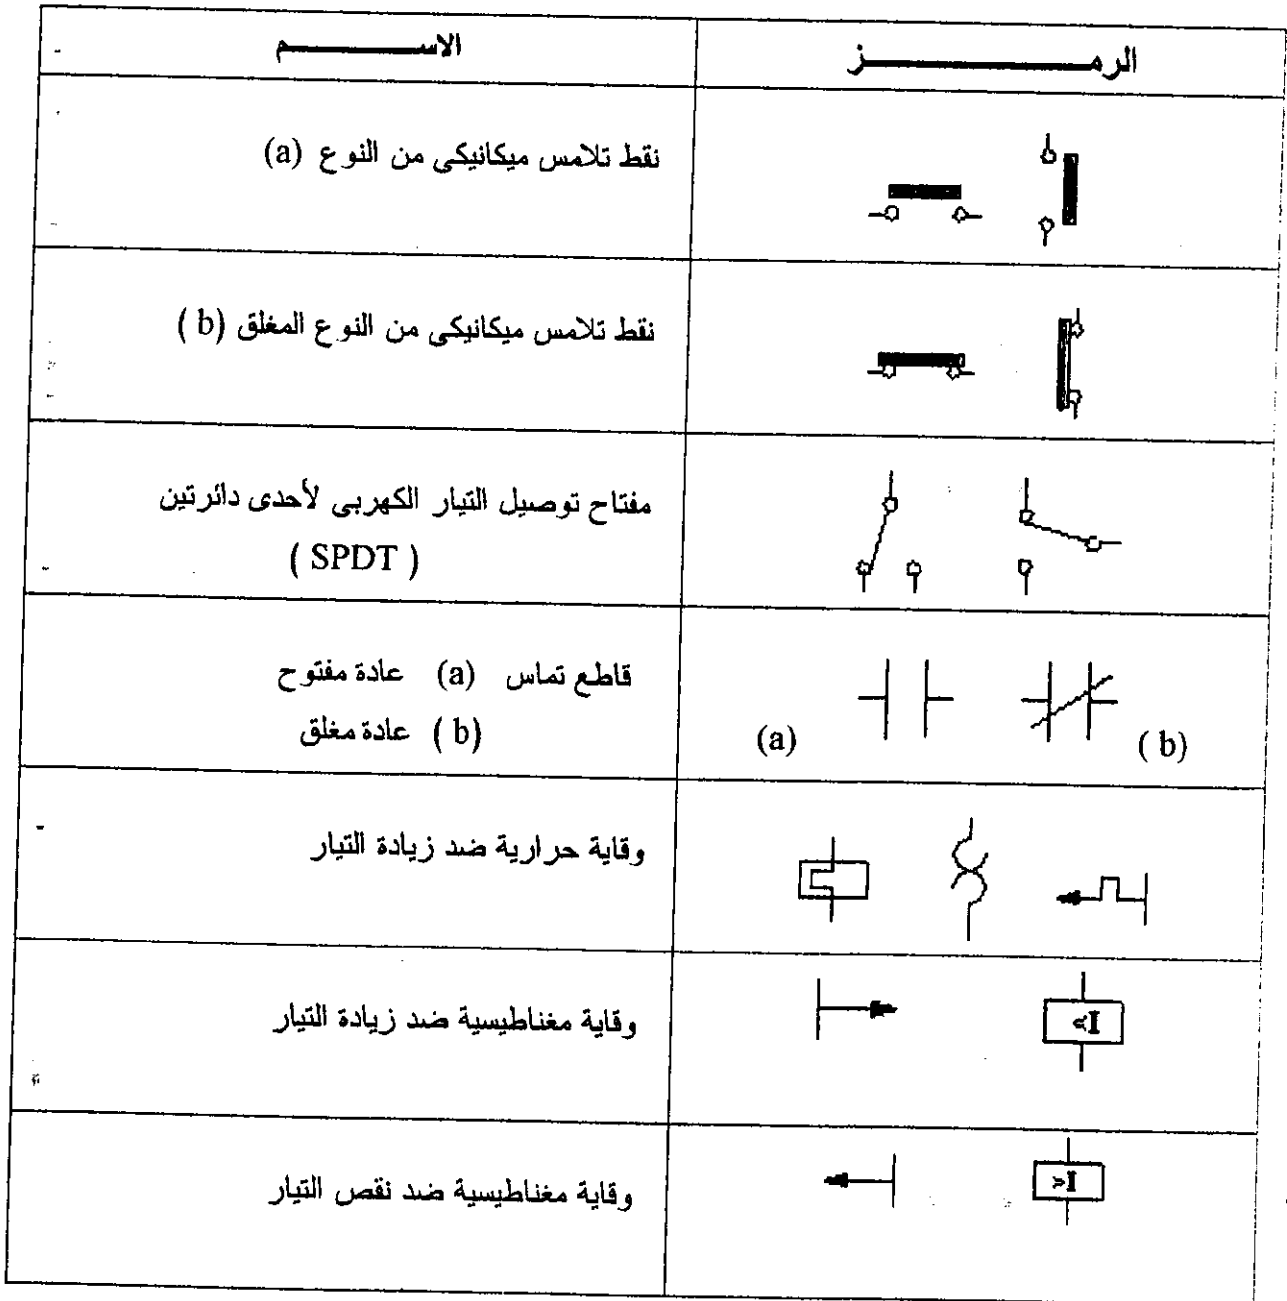 الرمز
الاسم
نقط تلامس ميكانيكى من النوع (a)
نقط تلامس ميكانيكى من النوع المغلق (b)
مفتاح توصيل التيار الكهربى لأحدى دائرتين
(SPDT)
(a) (b)
قاطع تماس (a) عادة مفتوح
(b) عادة مغلق
وقاية حرارية ضد زيادة التيار
I>
وقاية مغناطيسية ضد زيادة التيار
I<
وقاية مغناطيسية ضد نقص التيار